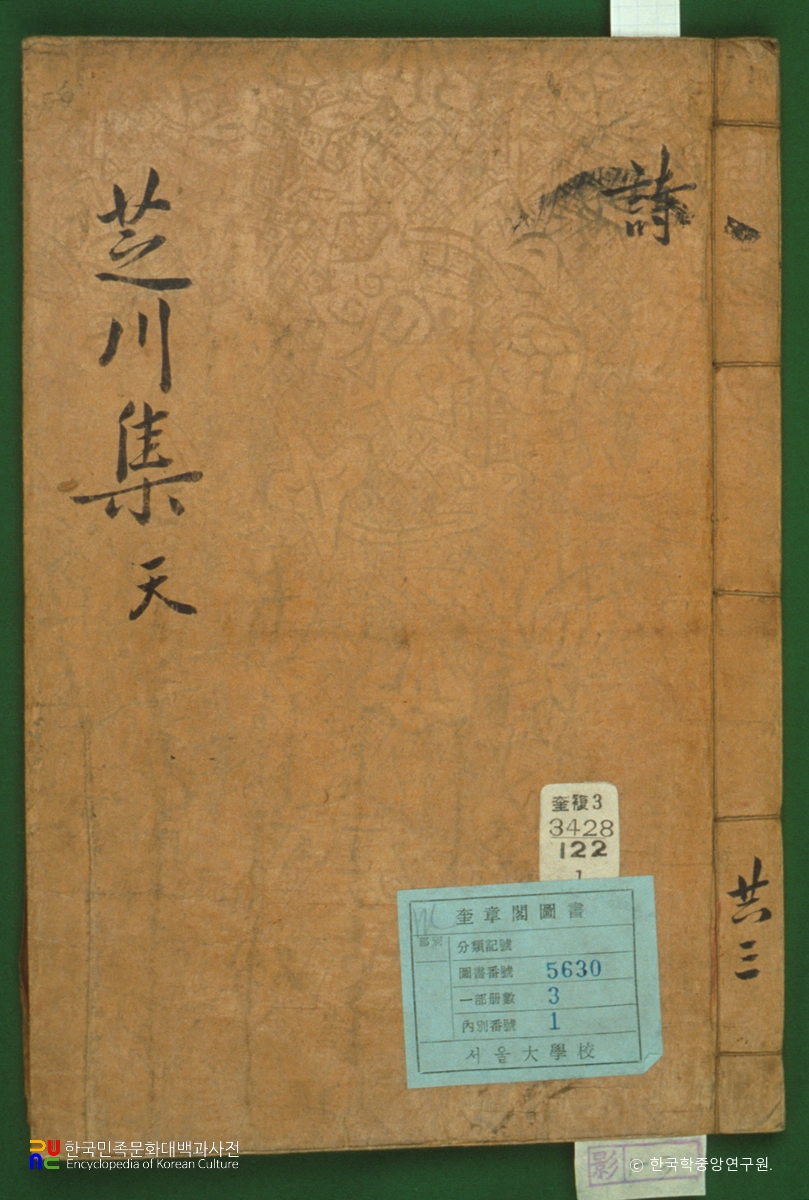 詩
芝川集 天
共三
奎複3
3428
122
1
奎章閣圖書
分類記號
圖書番號 5630
一部冊數 3
內別番號 1
서울大學校
影
한국민족문화대백과사전
Encyclopedia of Korean Culture
© 한국학중앙연구원.